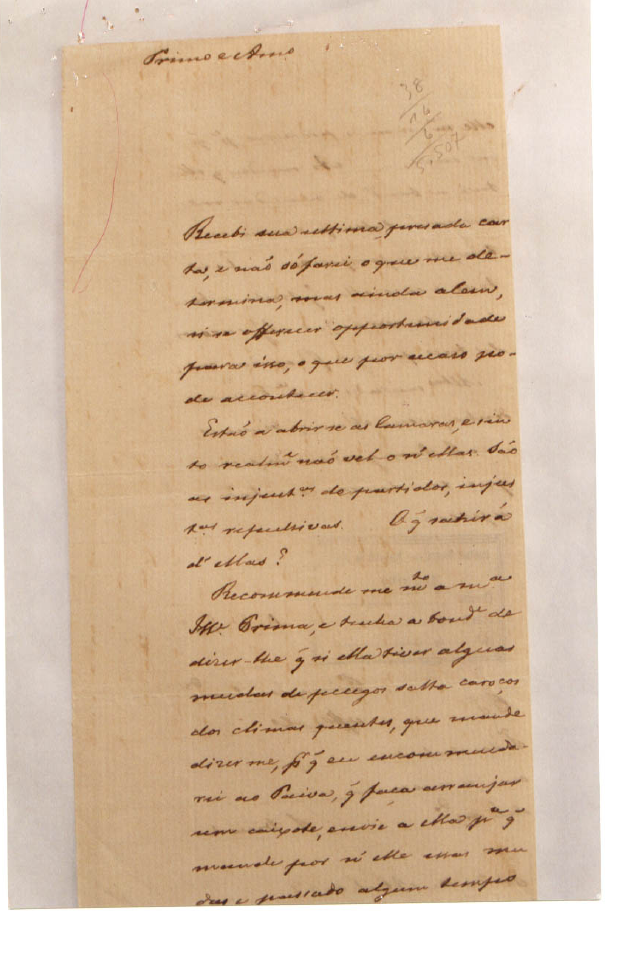 Primo e Amo
38
14
6
5,507
Recebi sua ultima presada car
ta, e naõ só farei o que me de-
termina, mas ainda alem,
si se offerecer opportunidade
para isso, o que por acaso po-
de acontecer.
Estaõ a abrir-se as Camaras, e sin
to realmᵉ naõ vel-o n'ellas. Saõ
as injustᵃˢ do partidos, injus
tᵃˢ repulsivas. O q̃ sahirá
d'ellas?
Recommende me mᵗᵒ a mᵃ
Illᵐᵃ Prima, e tenha a bondᵉ de
dizer-lhe q̃ si ella tiver alguas
mudas de pecegos salta caroços
dos climas quentes, que mande
dizer me, pʳ q̃ eu encommenda-
rei ao Paiva, q̃ faça arranjar
um caixote, envie a ella pʳᵃ q̃
mande por n'elle essas mu
das e passado algum tempo